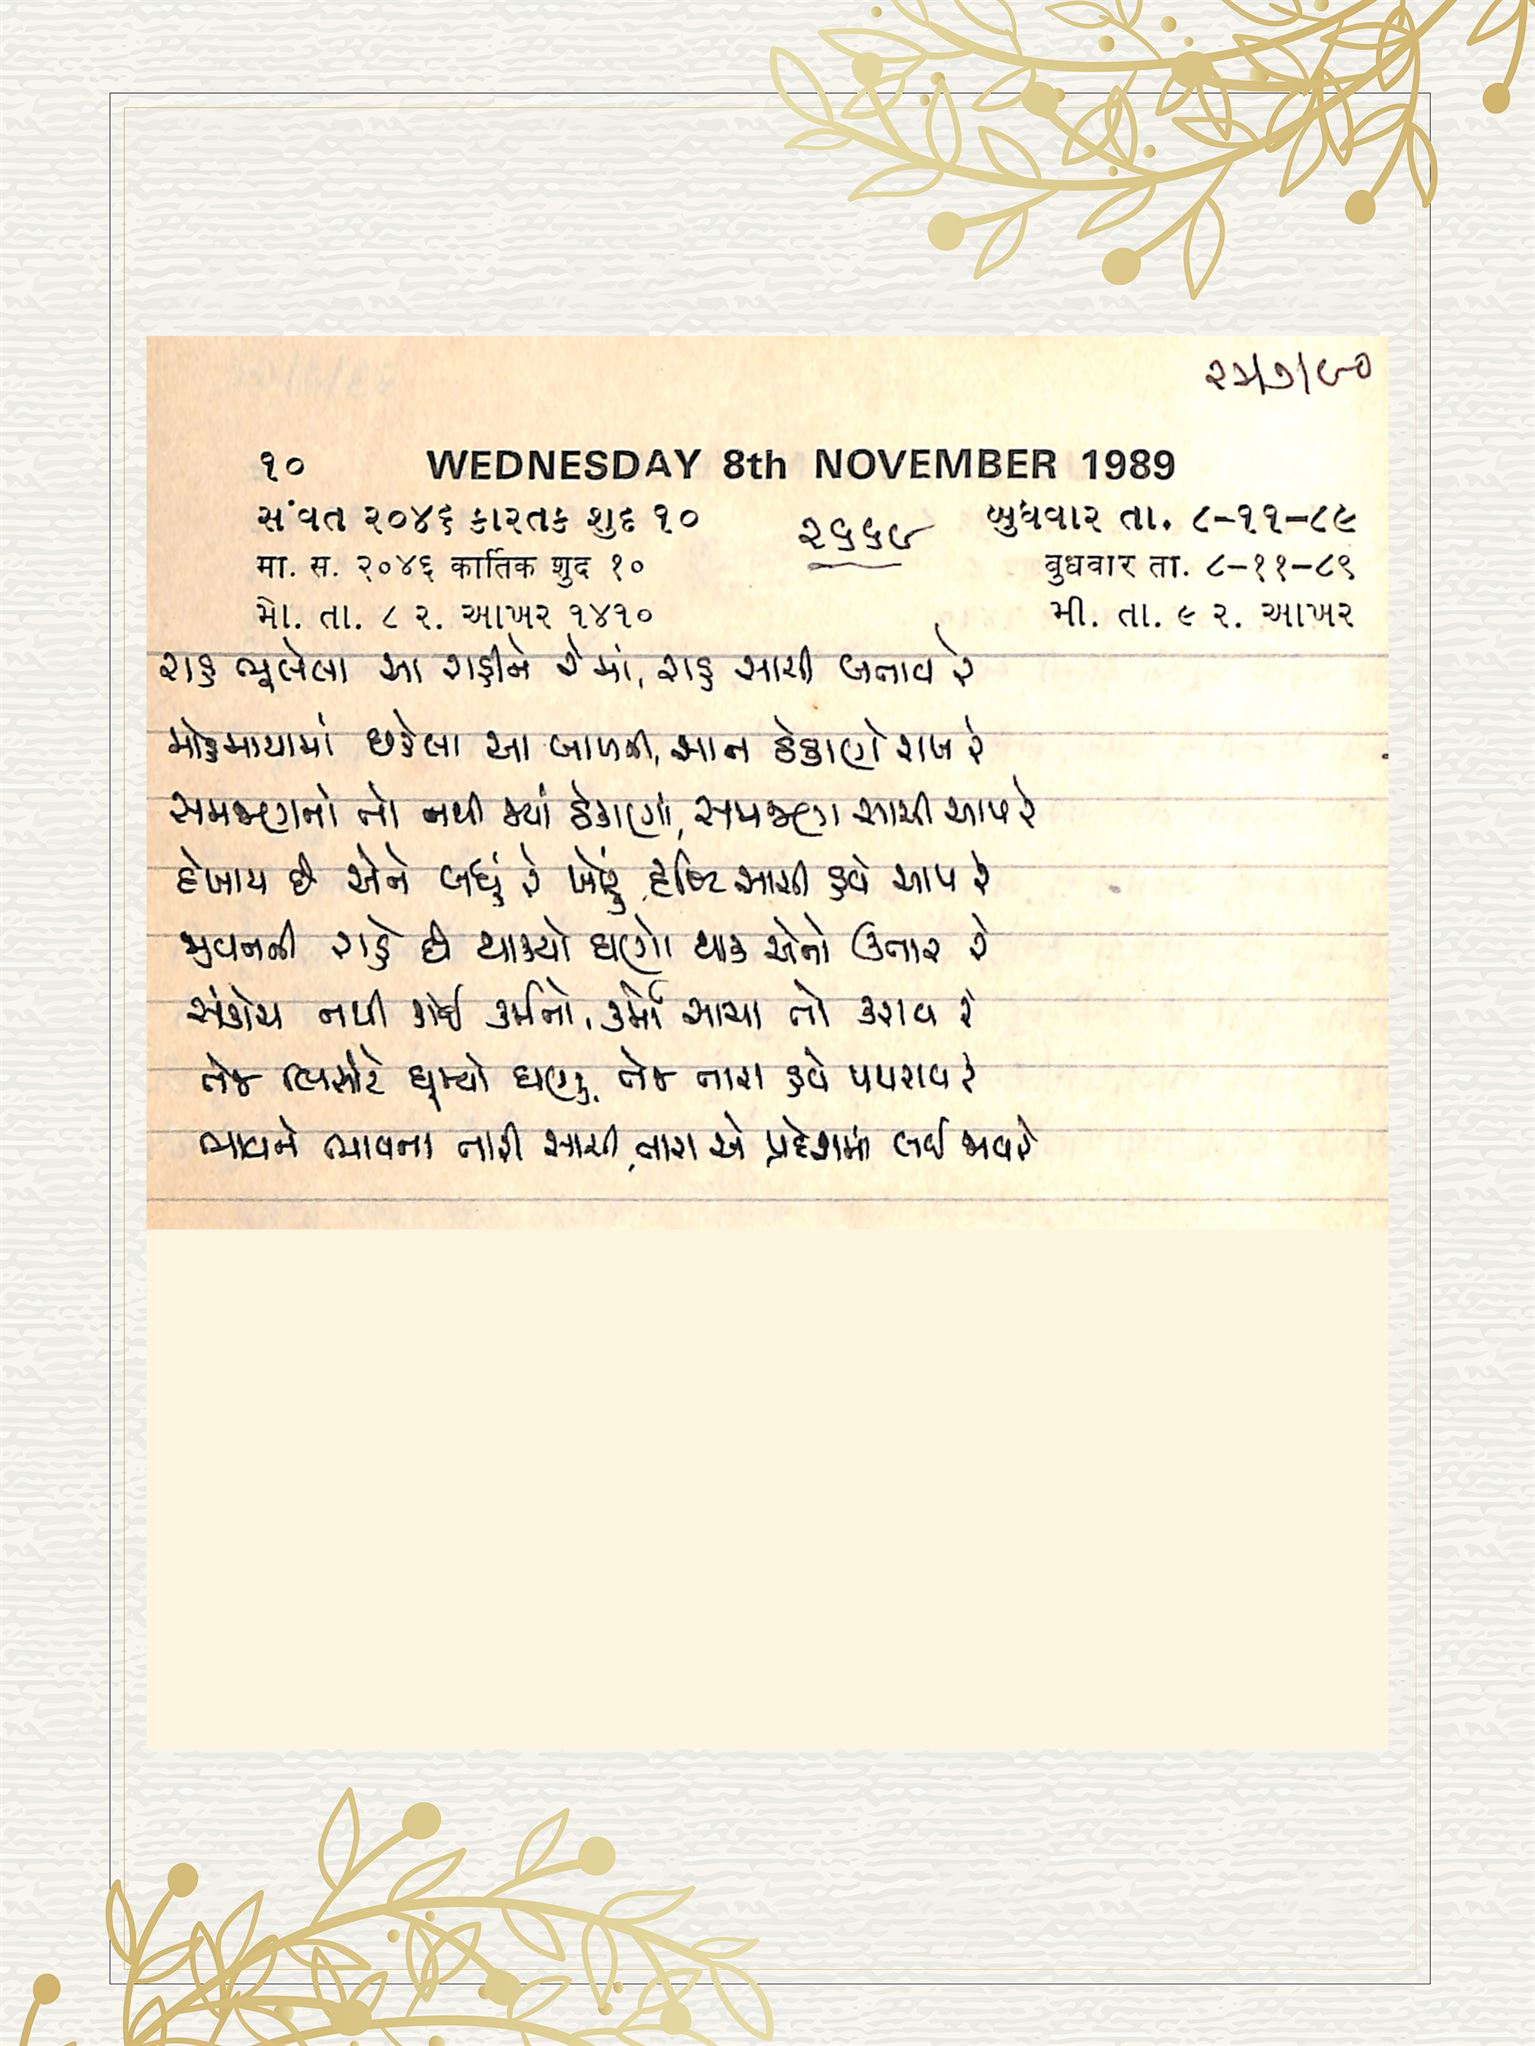 ૨૩/૭/૯૦
૧૦ WEDNESDAY 8th NOVEMBER 1989
સંવત ૨૦૪૬ કારતક શુદ ૧૦ ૨૬૬૯ બુધવાર તા. ૮-૧૧-૮૯
मा. स. २०४६ कार्तिक शुद १० बुधवार ता. ८-११-८९
મો. તા. ૮ ર. આખર ૧૪૧૦ મી. તા. ૯ ર. આખર
રાહ ભૂલેલા આ રાહીને રે માં, રાહ સાચી બતાવ રે
મોહમાયામાં છકેલા આ બાળની, સાન ઠેકાણે રાખ રે
સમજણનાં તો નથી ક્યાં ઠેકાણાં, સમજણ સાચી આપ રે
દેખાય છે એને બધું રે ખોટું, દૃષ્ટિ સાચી હવે આપ રે
જીવનની રાહે છે થાક્યો ઘણો થાક એનો ઉતાર રે
સંકોચ નથી કોઈ કર્મનો, કર્મો સાચા તો કરાવ રે
તેજ ઘૂમ્યો ઘણું, તેજ તારા હવે પથરાવ રે
ભાવને ભાવના તારી સાચી, તારા એ પ્રદેશમાં લઈ જાવ રે